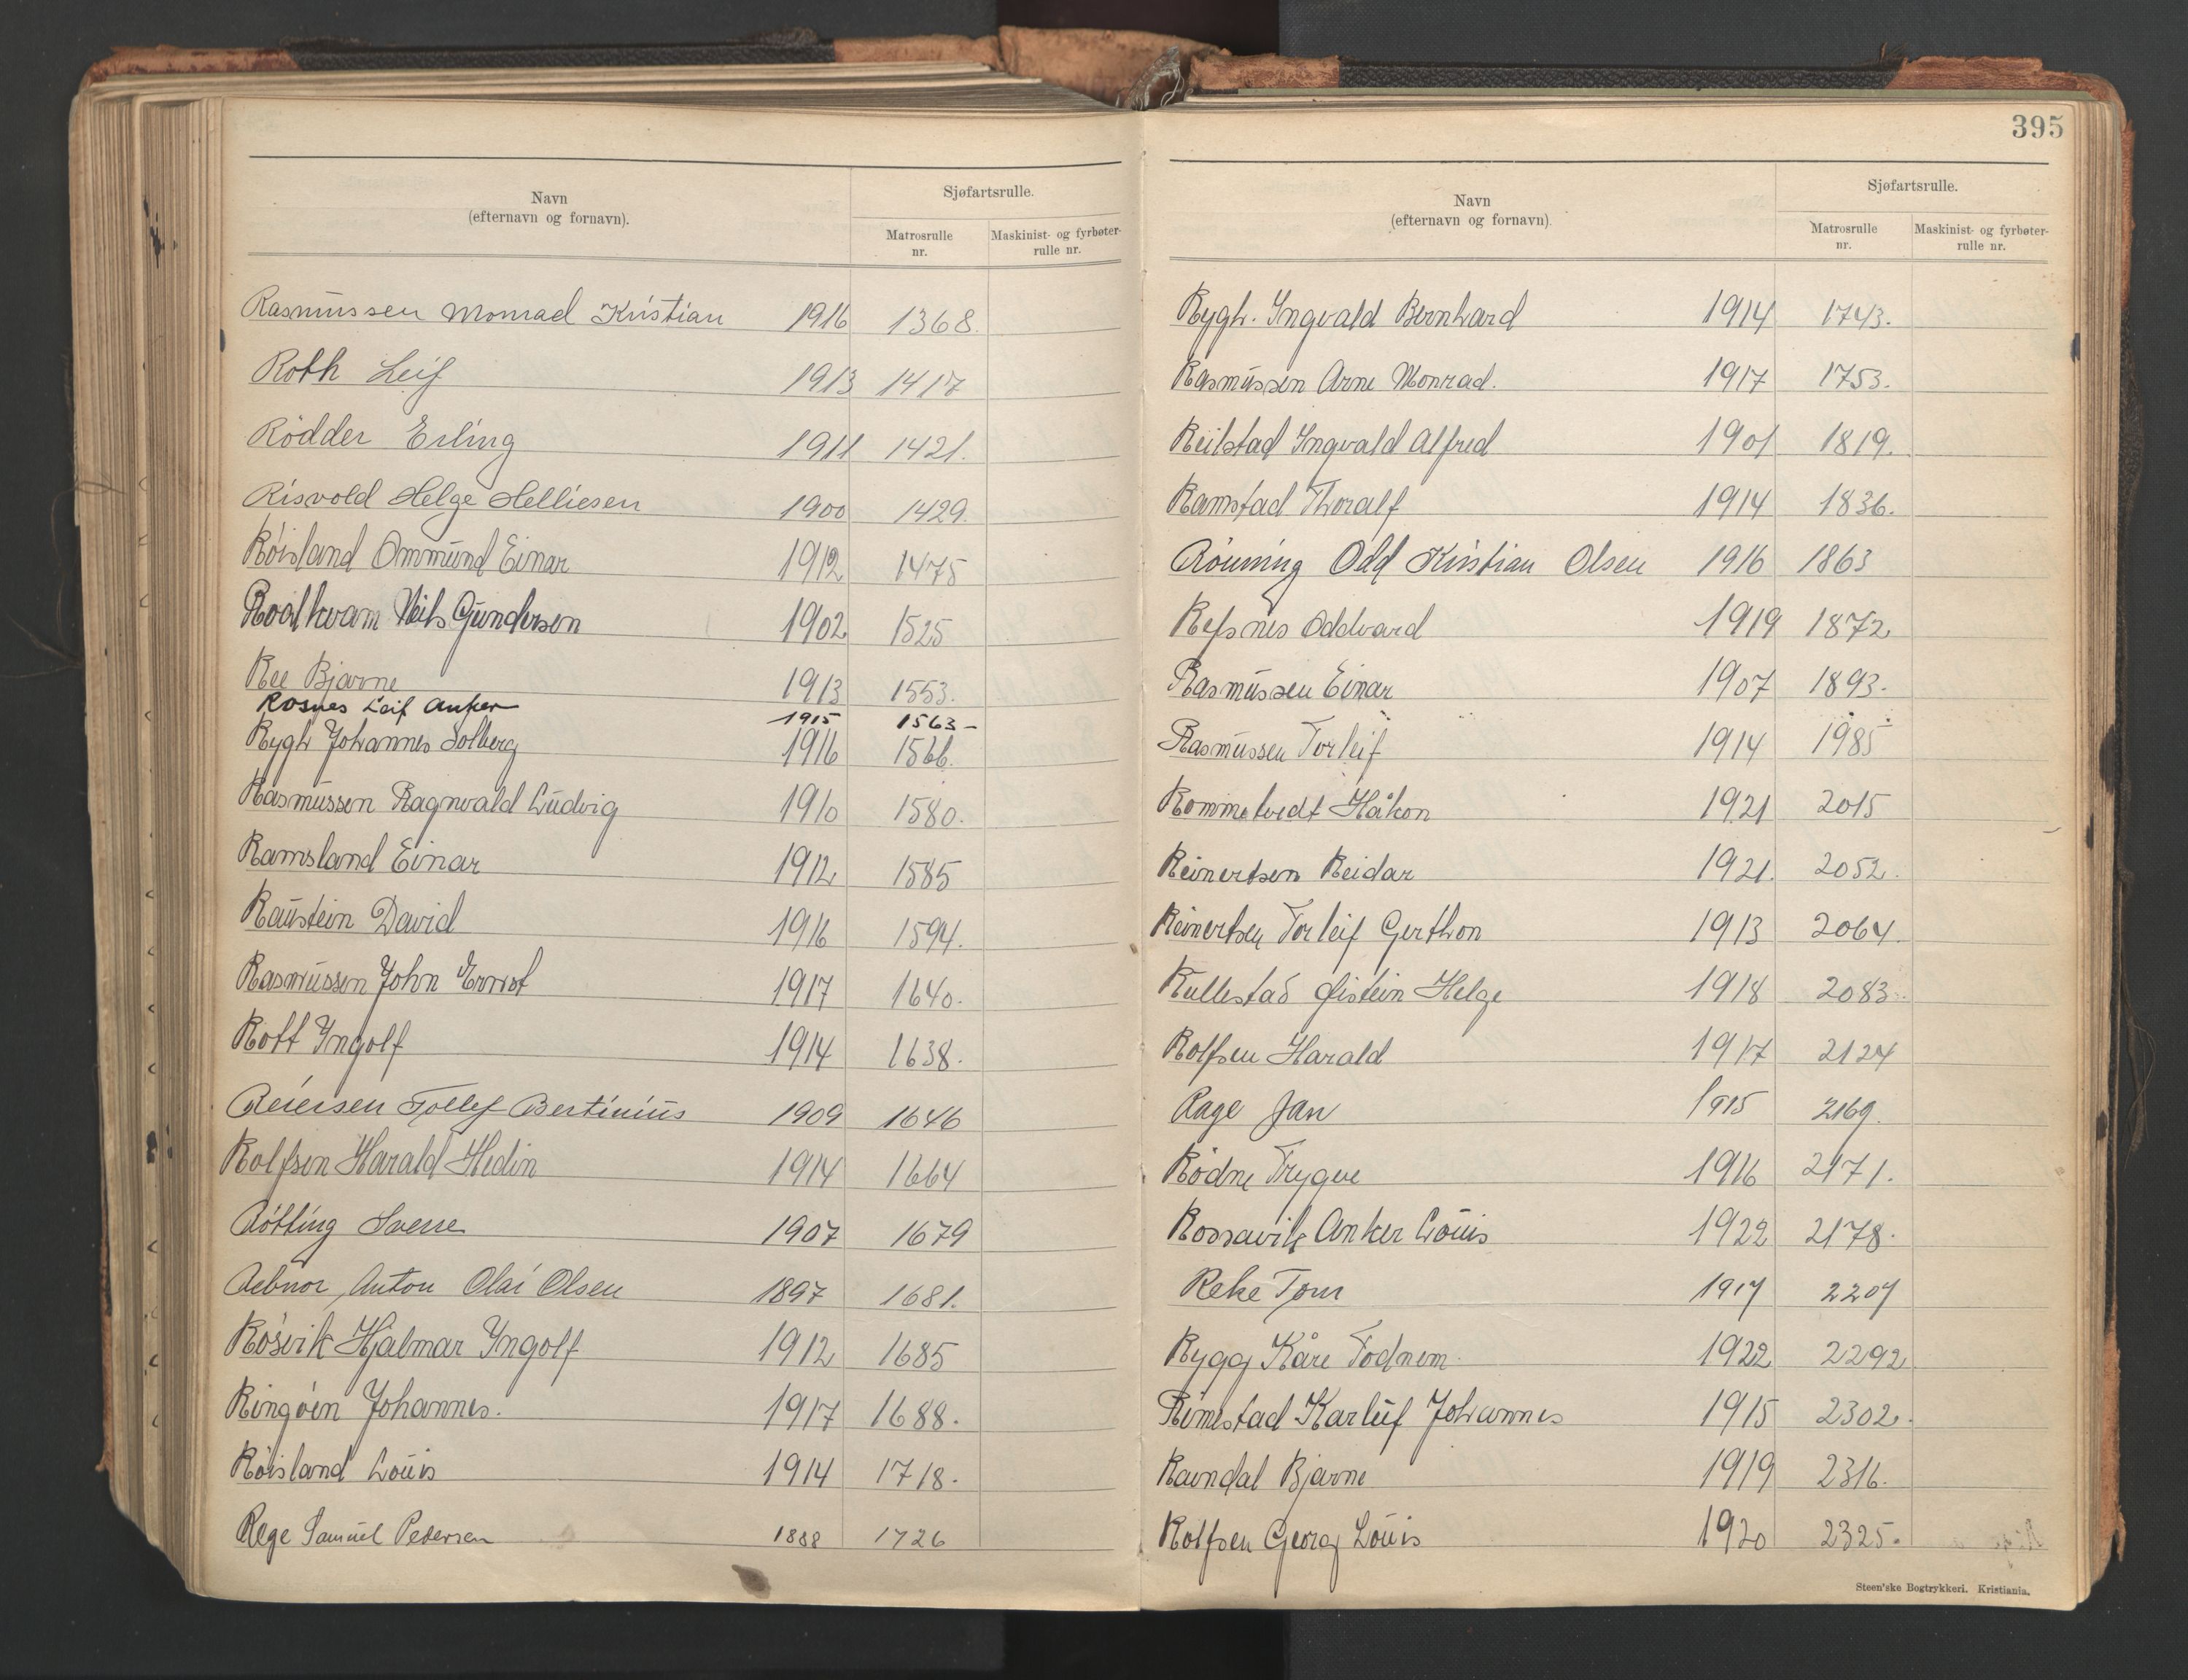 Navn
(efternavn og fornavn).
Sjøfartsrulle.
Matrosrulle nr.
Maskinist- og fyrbøter-rulle nr.
Rasmussen Monrad Kristian 1916 1368.
Roth Leif 1913 1417
Rödder Erling 1911 1421.
Risvold Helge Helliesen 1900 1429.
Röisland Ommund Einar 1912 1475
Roalkvam Nils Gundersen 1902 1525
Ree Bjarne 1913 1553.
Rosnes Leif Anker 1915 1563-
Rygh Johannes Solberg 1916 1566.
Rasmussen Ragnvald Ludvig 1910 1580.
Ramsland Einar 1912 1585
Raustein David 1916 1594.
Rasmussen John Ernst 1917 1640.
Rott Yngolf 1914 1638.
Reiersen Tollef Bertinius 1909 1646
Rolfsen Harald Hedin 1914 1664
Rötting Sverre 1907 1679
Rebnor, Anton Olai Olsen 1897 1681.
Rösvik Hjalmar Yngolf 1912 1685
Ringöen Johannes. 1917 1688.
Röisland Louis 1914 1718.
Rege Samuel Pedersen 1888 1726
395
Navn
(efternavn og fornavn).
Sjøfartsrulle.
Matrosrulle nr.
Maskinist- og fyrbøter-rulle nr.
Rygh. Yngvald Bernhard 1914 1743.
Rasmussen Arne Monrad. 1917 1753.
Reilstad Yngvald Alfred 1901 1819.
Ramstad Thoralf 1914 1836.
Rönning Odd Kristian Olsen 1916 1863
Refsnes Oddvard 1919 1872
Rasmussen Einar 1907 1893.
Rasmussen Torleif 1914 1985
Rommetvedt Håkon 1921 2015
Reinertsen Reidar 1921. 2052.
Reinertsen Torleif Gerthon 1913 2064.
Rullestad Øistein Helge 1918 2083.
Rolfsen Harald 1917 2124
Rage Jan 1915 2169.
Rödne Trygve 1916 2171.
Rossavik Anker Louis 1922 2178.
Reke Tom 1917 2207
Rygg Kåre Todnem. 1922 2292
Rimestad Karleif Johannes 1915 2302.
Ravndal Bjarne 1919 2316.
Rolfsen Georg Louis 1920 2325.
Steen'ske Bogtrykkeri. Kristiania.